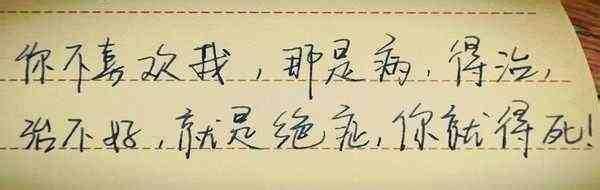 你不喜欢我，那是病，得治，
治不好，就是绝症，你就得死！